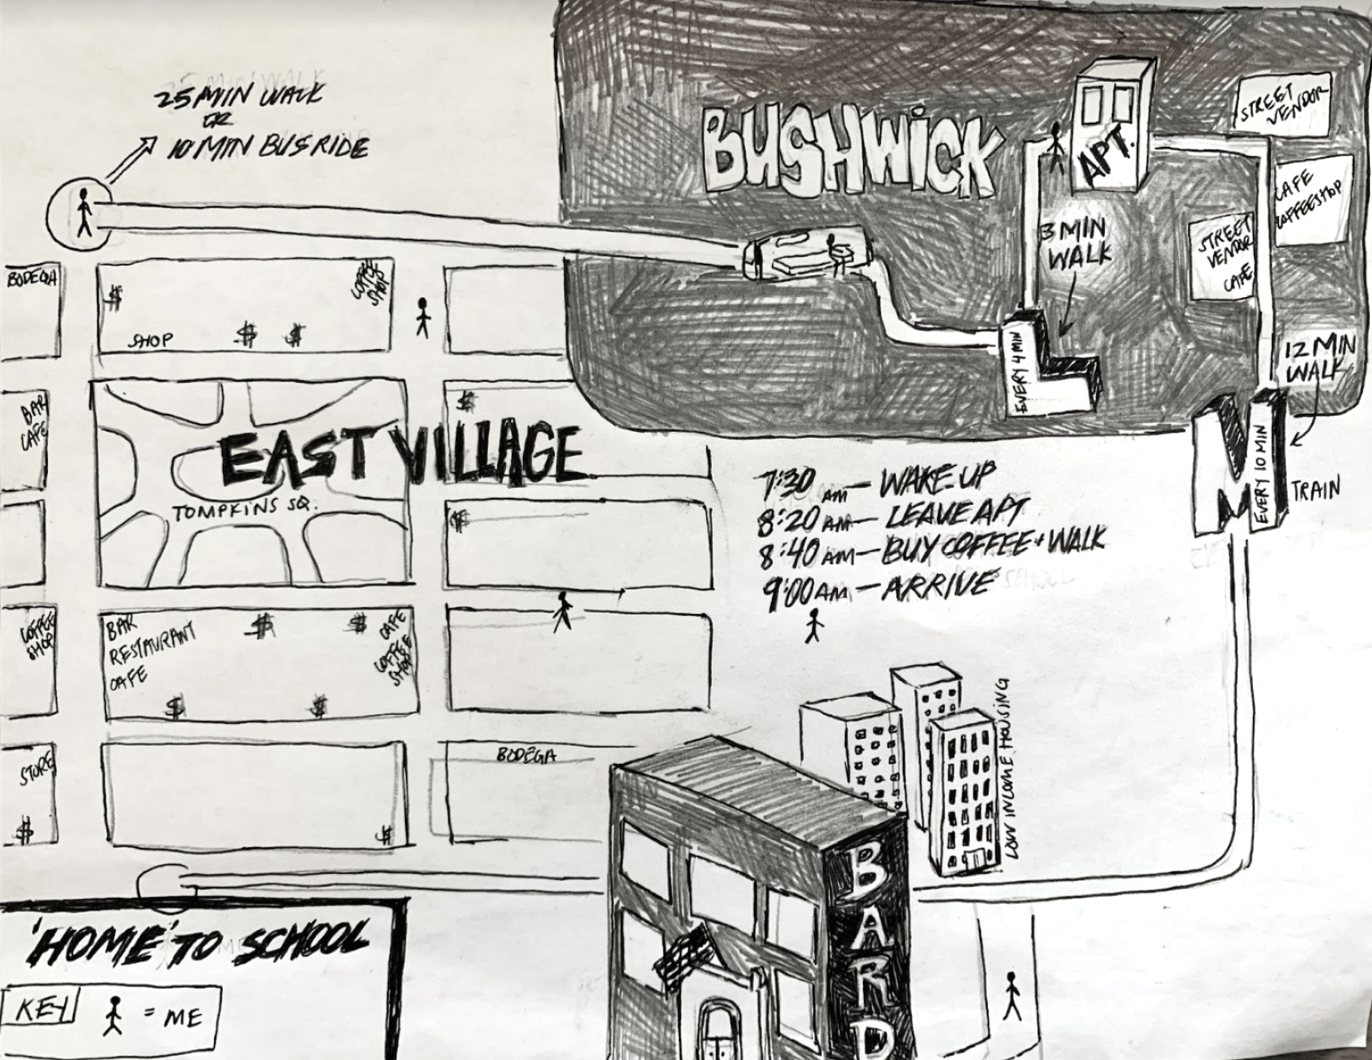 25 MIN WALK
OR
10 MIN BUS RIDE
BUSHWICK
APT.
STREET
VENDOR
CAFE
COFFEESHOP
STREET
VENDOR
CAFE
3 MIN
WALK
EVERY 4 MIN
L
12 MIN
WALK
M
EVERY 10 MIN
TRAIN
BODEGA
$
COFFEE
SHOP
SHOP
$ $
BAR
CAFE
$
EAST VILLAGE
TOMPKINS SQ.
$
7:30 AM — WAKE UP
8:20 AM — LEAVE APT
8:40 AM — BUY COFFEE + WALK
9:00 AM — ARRIVE
COFFEE
SHOP
BAR
RESTAURANT
CAFE
$ $
CAFE
COFFEE
SHOP
$ $
STORE
$
$
BODEGA
LOW INCOME HOUSING
BARD
'HOME' TO SCHOOL
KEY
= ME